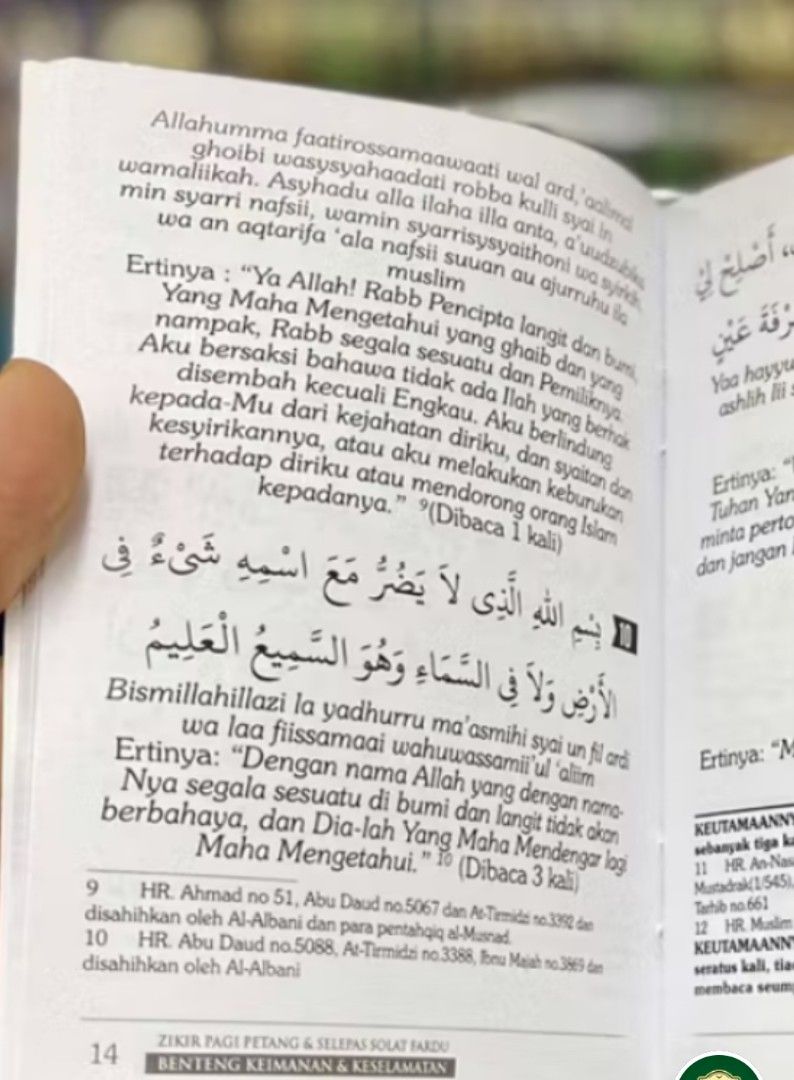 Allahumma faatirossamaawaati wal ard,'aalimal
ghoibi wasysyahaadati robba kulli syai in
wamaliikah. Asyhadu alla ilaha illa anta, a'uudzubika
min syarri nafsii, wamin syarrisysyaithoni wa syirkih,
wa an aqtarifa 'ala nafsii suuan au ajurruhu ila
muslim
Ertinya : "Ya Allah! Rabb Pencipta langit dan bumi,
Yang Maha Mengetahui yang ghaib dan yang
nampak, Rabb segala sesuatu dan Pemiliknya.
Aku bersaksi bahawa tidak ada Ilah yang berhak
disembah kecuali Engkau. Aku berlindung
kepada-Mu dari kejahatan diriku, dan syaitan dan
kesyirikannya, atau aku melakukan keburukan
terhadap diriku atau mendorong orang Islam
kepadanya." 9(Dibaca 1 kali)
10 بِسْمِ اللهِ الَّذِى لاَ يَضُرُّ مَعَ اسْمِهِ شَيْءٌ فِى
الأَرْضِ وَلاَ فِى السَّمَاءِ وَهُوَ السَّمِيعُ الْعَلِيمُ
Bismillahillazi la yadhurru ma'asmihi syai un fil ardi
wa laa fiissamaai wahuwassamii'ul 'aliim
Ertinya: "Dengan nama Allah yang dengan nama-
Nya segala sesuatu di bumi dan langit tidak akan
berbahaya, dan Dia-lah Yang Maha Mendengar lagi
Maha Mengetahui." 10 (Dibaca 3 kali)
9 HR. Ahmad no 51, Abu Daud no.5067 dan At-Tirmidzi no.3392 dan
disahihkan oleh Al-Albani dan para pentahqiq al-Musnad.
10 HR. Abu Daud no.5088, At-Tirmidzi no.3388, Ibnu Majah no.3869 dan
disahihkan oleh Al-Albani
14 ZIKIR PAGI PETANG & SELEPAS SOLAT FARDU
BENTENG KEIMANAN & KESELAMATAN
أَصْلِحْ لِيْ
عَيْنٍ
Yaa hayyu
ashlih lii
Ertinya:
Tuhan Yan
minta perto
dan jangan
Ertinya: "M
KEUTAMAANNY
sebanyak tiga ka
11 HR. An-Nas
Mustadrak(1/545),
Tarhib no.661
12 HR. Muslim
KEUTAMAANNY
seratus kali, tia
membaca seum